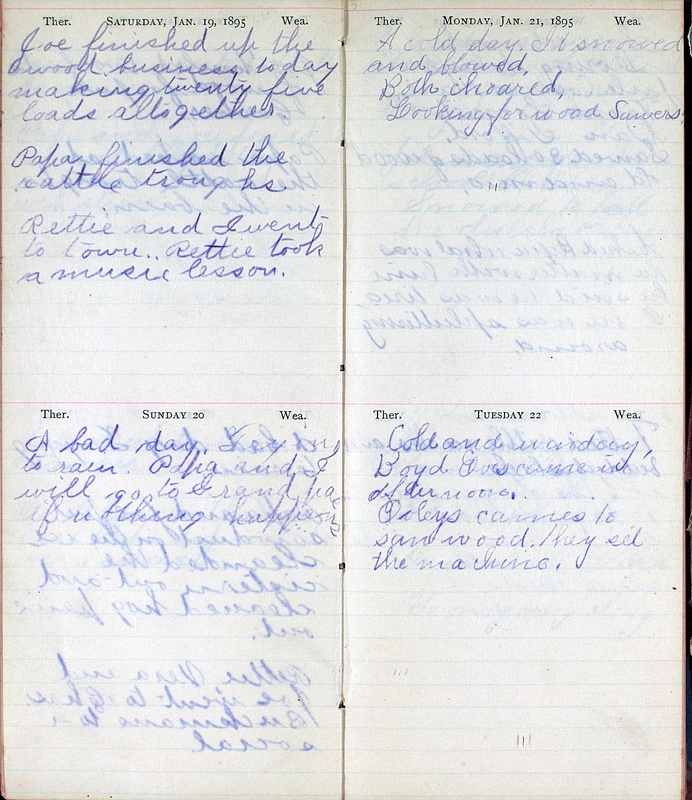 Ther. SATURDAY, JAN. 19, 1895 Wea.
Joe finished up the
wood business today
making twenty five
loads altogether
Papa finished the
cattle troughs.
Rettie and I went
to town. Rettie took
a music lesson.
Ther. SUNDAY 20 Wea.
A bad day. Trying
to rain. Papa and I
will go to Grandpa
if nothing happens
Ther. MONDAY, JAN. 21, 1895 Wea.
A cold day. It snowed
and blowed,
Both choared,
Looking for wood Sawers.
Ther. TUESDAY 22 Wea.
Cold and winday,
Boyd came in
afternoon.
cames to
saw wood. They set
the machine.